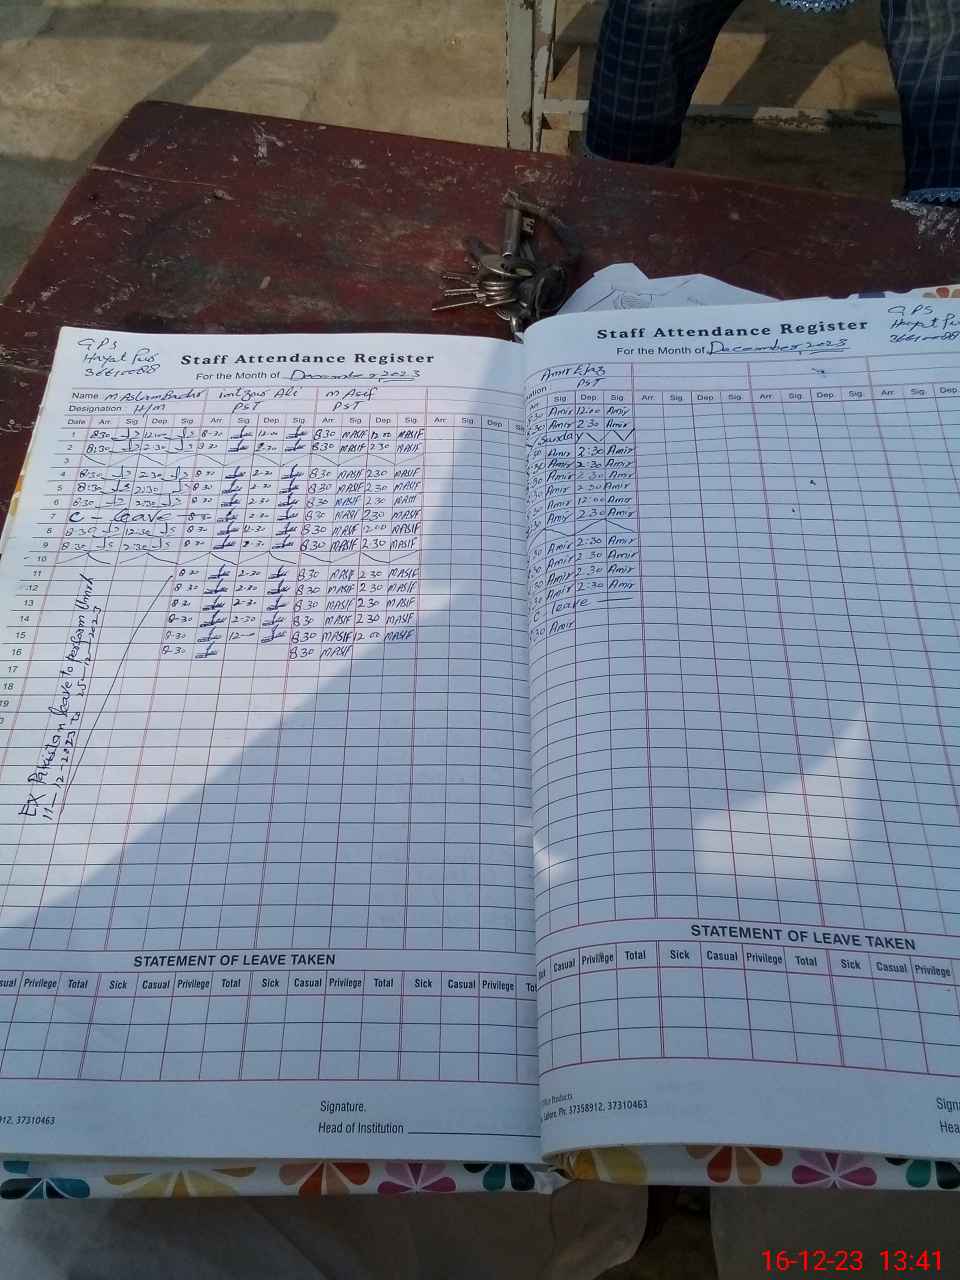 GPS
Hayat Pur
36610088
Staff Attendance Register
For the Month of December, 2023
Name M Aslam Imtiaz Ali M Asif
Designation H/M PST PST
Date Arr. Sig. Dep. Sig Arr. Sig. Dep. Sig. Arr. Sig. Dep. Sig. Arr. Sig. Dep.
1 8:30 12:00 8-30 12-00 8:30 MASIF 12 00 MASIF
2 8:30 2:30 8-30 2-30 8:30 MASIF 2 30 MASIF
3
4 8:30 2:30 8-30 2-30 8:30 MASIF 2 30 MASIF
5 8:30 2:30 8-30 2-30 8:30 MASIF 2 30 MASIF
6 8:30 2:30 8-30 2-30 8:30 MASIF 2 30 MASIF
7 C leave 8-30 2-30 8:30 MASIF 2 30 MASIF
8 8:30 12:30 8-30 12-30 8:30 MASIF 12 00 MASIF
9 8:30 2:30 8-30 2-30 8:30 MASIF 2:30 MASIF
10
11 8-30 2-30 8:30 MASIF 2 30 MASIF
12 8-30 2-30 8:30 MASIF 2 30 MASIF
13 8-30 2-30 8:30 MASIF 2 30 MASIF
14 8-30 2-30 8:30 MASIF 2 30 MASIF
15 8-30 12-00 8:30 MASIF 12 00 MASIF
16 8-30 8:30 MASIF
17
18
19
EX Pakistan leave to perform Umra
11-12-2023 to 25-12-2023
STATEMENT OF LEAVE TAKEN
Casual Privilege Total Sick Casual Privilege Total Sick Casual Privilege Total Sick Casual Privilege
Signature.
912, 37310463
Head of Institution
GPS
Hayat Pur
36610088
Staff Attendance Register
For the Month of December, 2023
Amir Ejaz
PST
Sig. Dep. Sig. Arr. Sig. Dep. Sig. Arr. Sig. Dep. Sig. Arr. Sig. Dep.
Amir 12:00 Amir
Amir 2:30 Amir
Sunday
Amir 2:30 Amir
Amir 2:30 Amir
Amir 2:30 Amir
Amir 2:30 Amir
Amir 12:00 Amir
Amir 2:30 Amir
Amir 2:30 Amir
Amir 2:30 Amir
Amir 2:30 Amir
Amir 2:30 Amir
C leave
Amir
STATEMENT OF LEAVE TAKEN
Casual Privilege Total Sick Casual Privilege Total Sick Casual Privilege
Products
Lahore. Ph: 37358912, 37310463
16-12-23 13:41